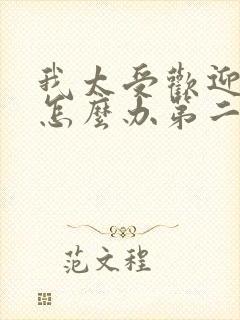 我太受歡迎
怎麼办第二
范文程